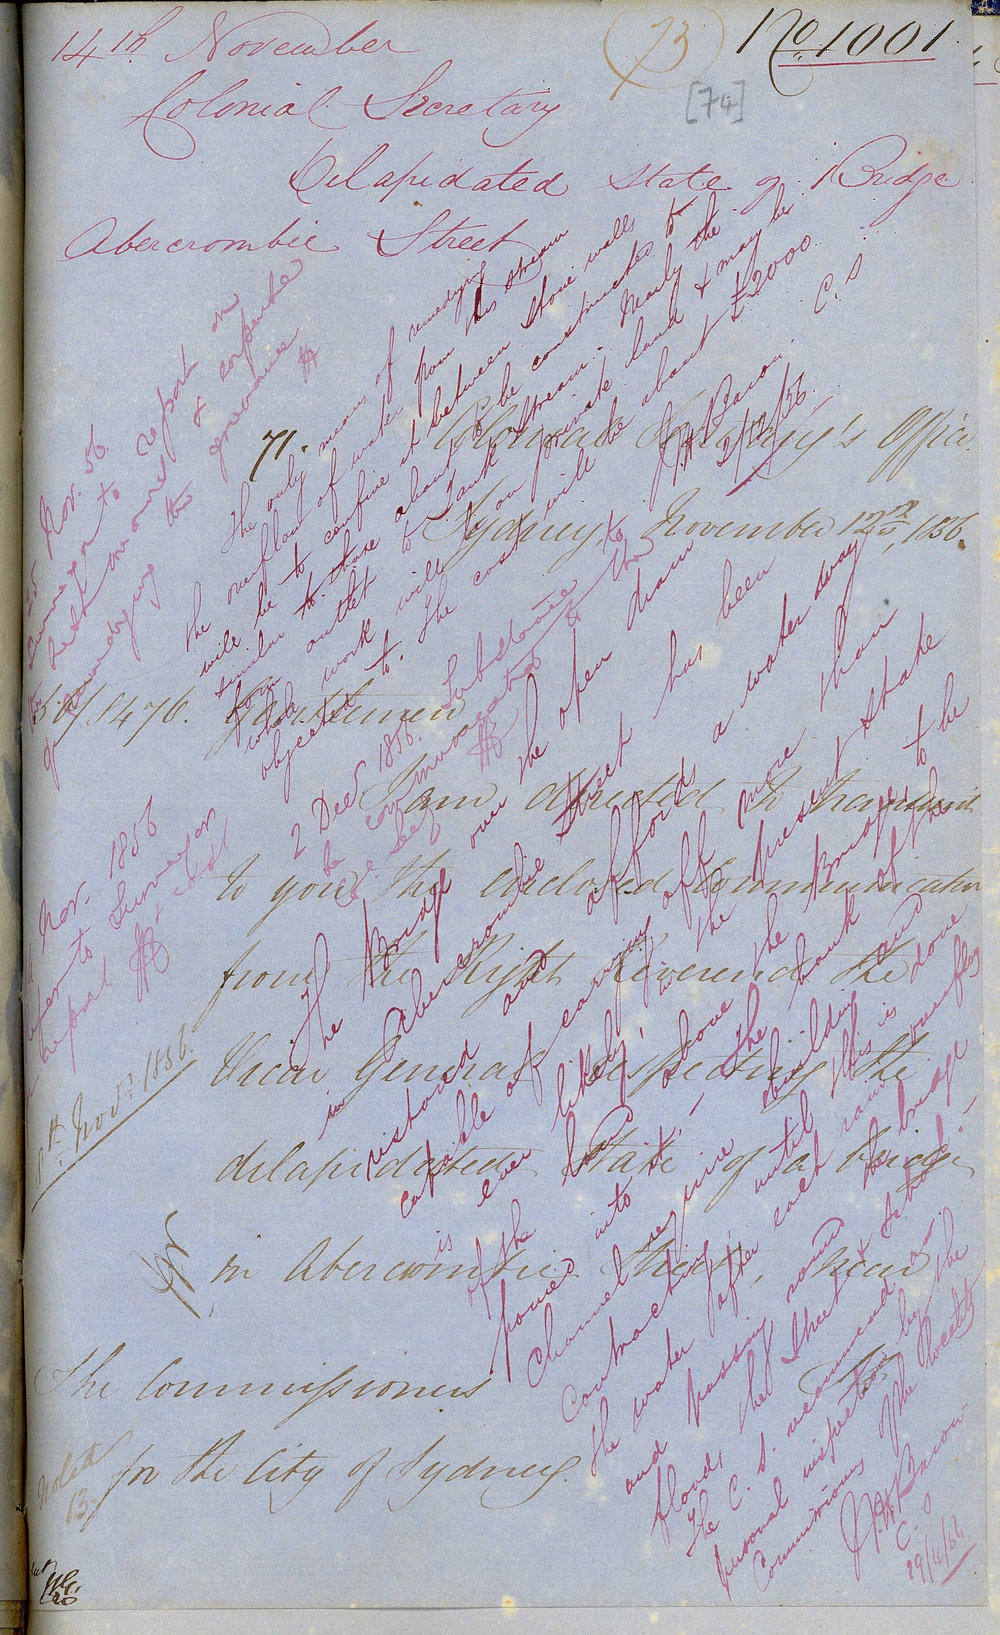 14th November
(73)
No. 1001
[74]
Colonial Secretary
Dilapidated state of Bridge
Abercrombie Street
71.
Colonial Secretary's Office
Sydney, November 12th, 1856.
56/8476.
Gentlemen
I am directed to transmit
to you the enclosed Communication
from the Right Reverend the
Vicar General respecting the
dilapidated state of a bridge
in Abercrombie Street, near
The
The Commissioners
for the City of Sydney.
Noted
13.
14 Nov. 1856
refer to Surveyor
report & cost
Nov. 1856.
25 Nov. 56
Surveyor to
report on
best mode & expense
of remedying the grievance
The only means of remedying
the overflow of water from this stream
will be to confine it between stone walls
similar to those about to be constructed to
form outlet to Tank Stream. Nearly the
whole work will be on private land & may be
objected to. The cost will be about £2000.
C.S
2/12/56.
2 Decr 1856. Substance to
be communicated to the
Col Secy
If the Bridge over the open drain
in Abercrombie Street has been
restored and affords a water way
capable of carrying off more than
is ever likely, in the present state
of the land above the Bridge, to be
poured into it. The bank of the
Channel require building and
contracting, until this is done
the water after each rain overflows
and passing round the bridge
floods the Street & School.
The C. S. recommend an
personal inspection by the
Commissioners of the locality
C. S
29/11/56.